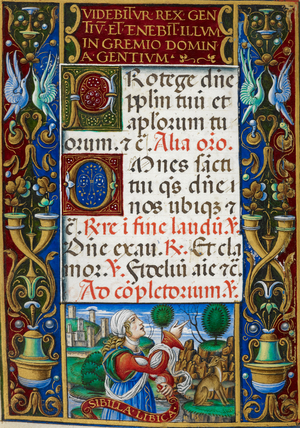 VIDEBITVR·REX·GEN
TIV·ET·ENEBIT·ILLVM
IN GREMIO DOMIN
A·GENTIVM·
Protege dn̄e
pplin tuū et
aplorum tu
orum. et c̄. Alia or̄o.
Omnes sācti
tui q̄s dn̄e i
nos ubiqz et
c̄. Rr̄e i fine laudū ꝟ.
Dn̄e exau. R. Et cla
mor. ꝟ. Fideliū aīe et c̄.
Ad cōpletorium ꝟ.
SIBILLA·LIBICA